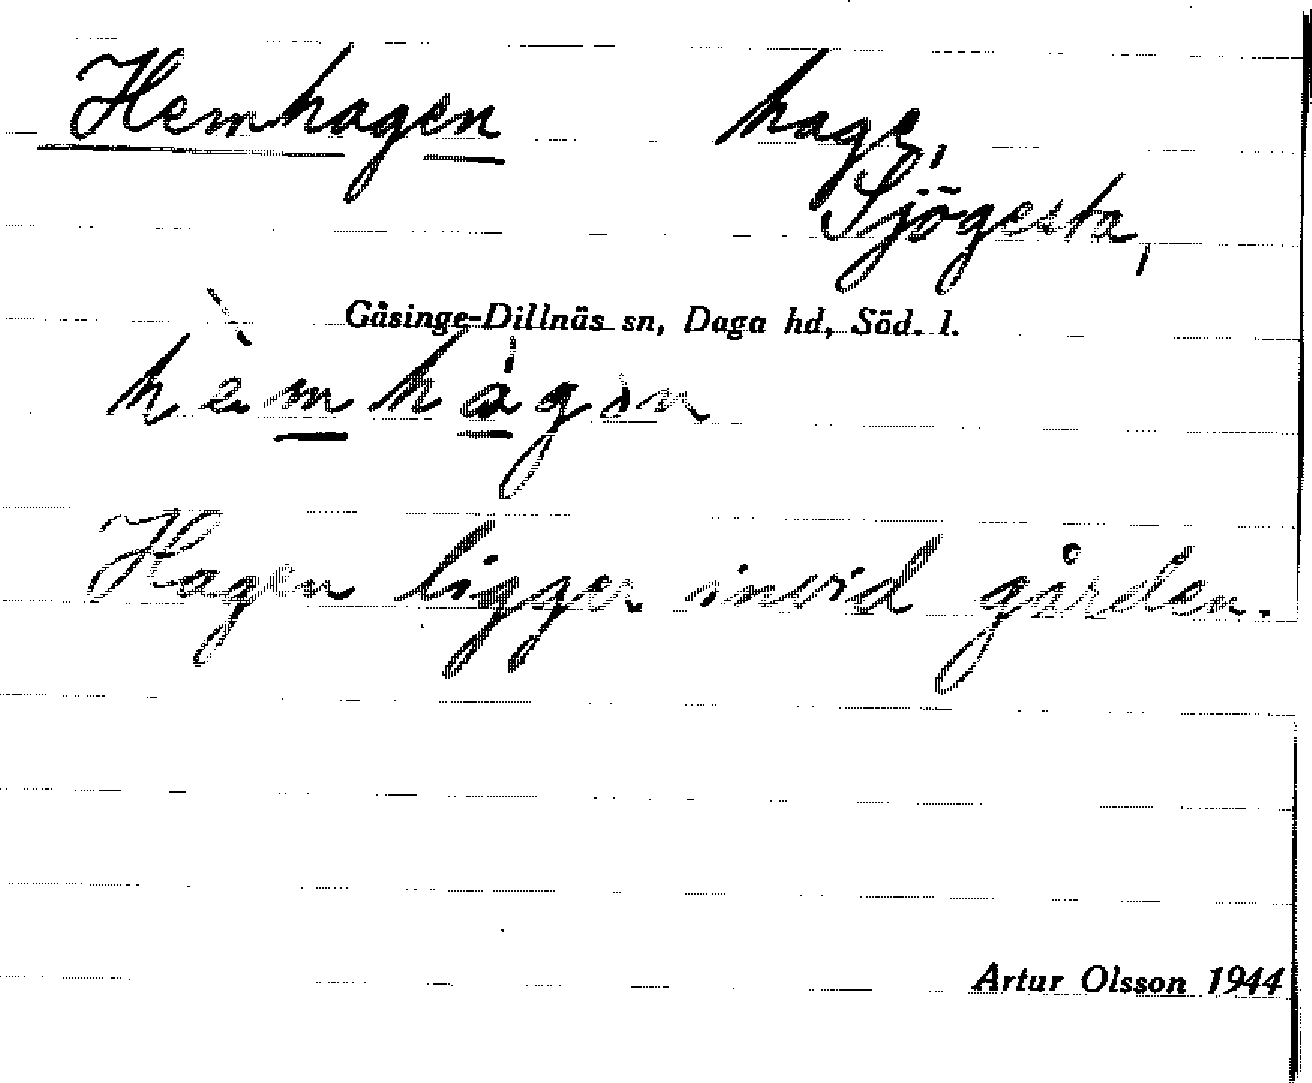 Hemhagen hage,
Sjögesta,
Gåsinge-Dillnäs sn, Daga hd, Söd. l.
Hagen ligger invid gården.
Artur Olsson 1944